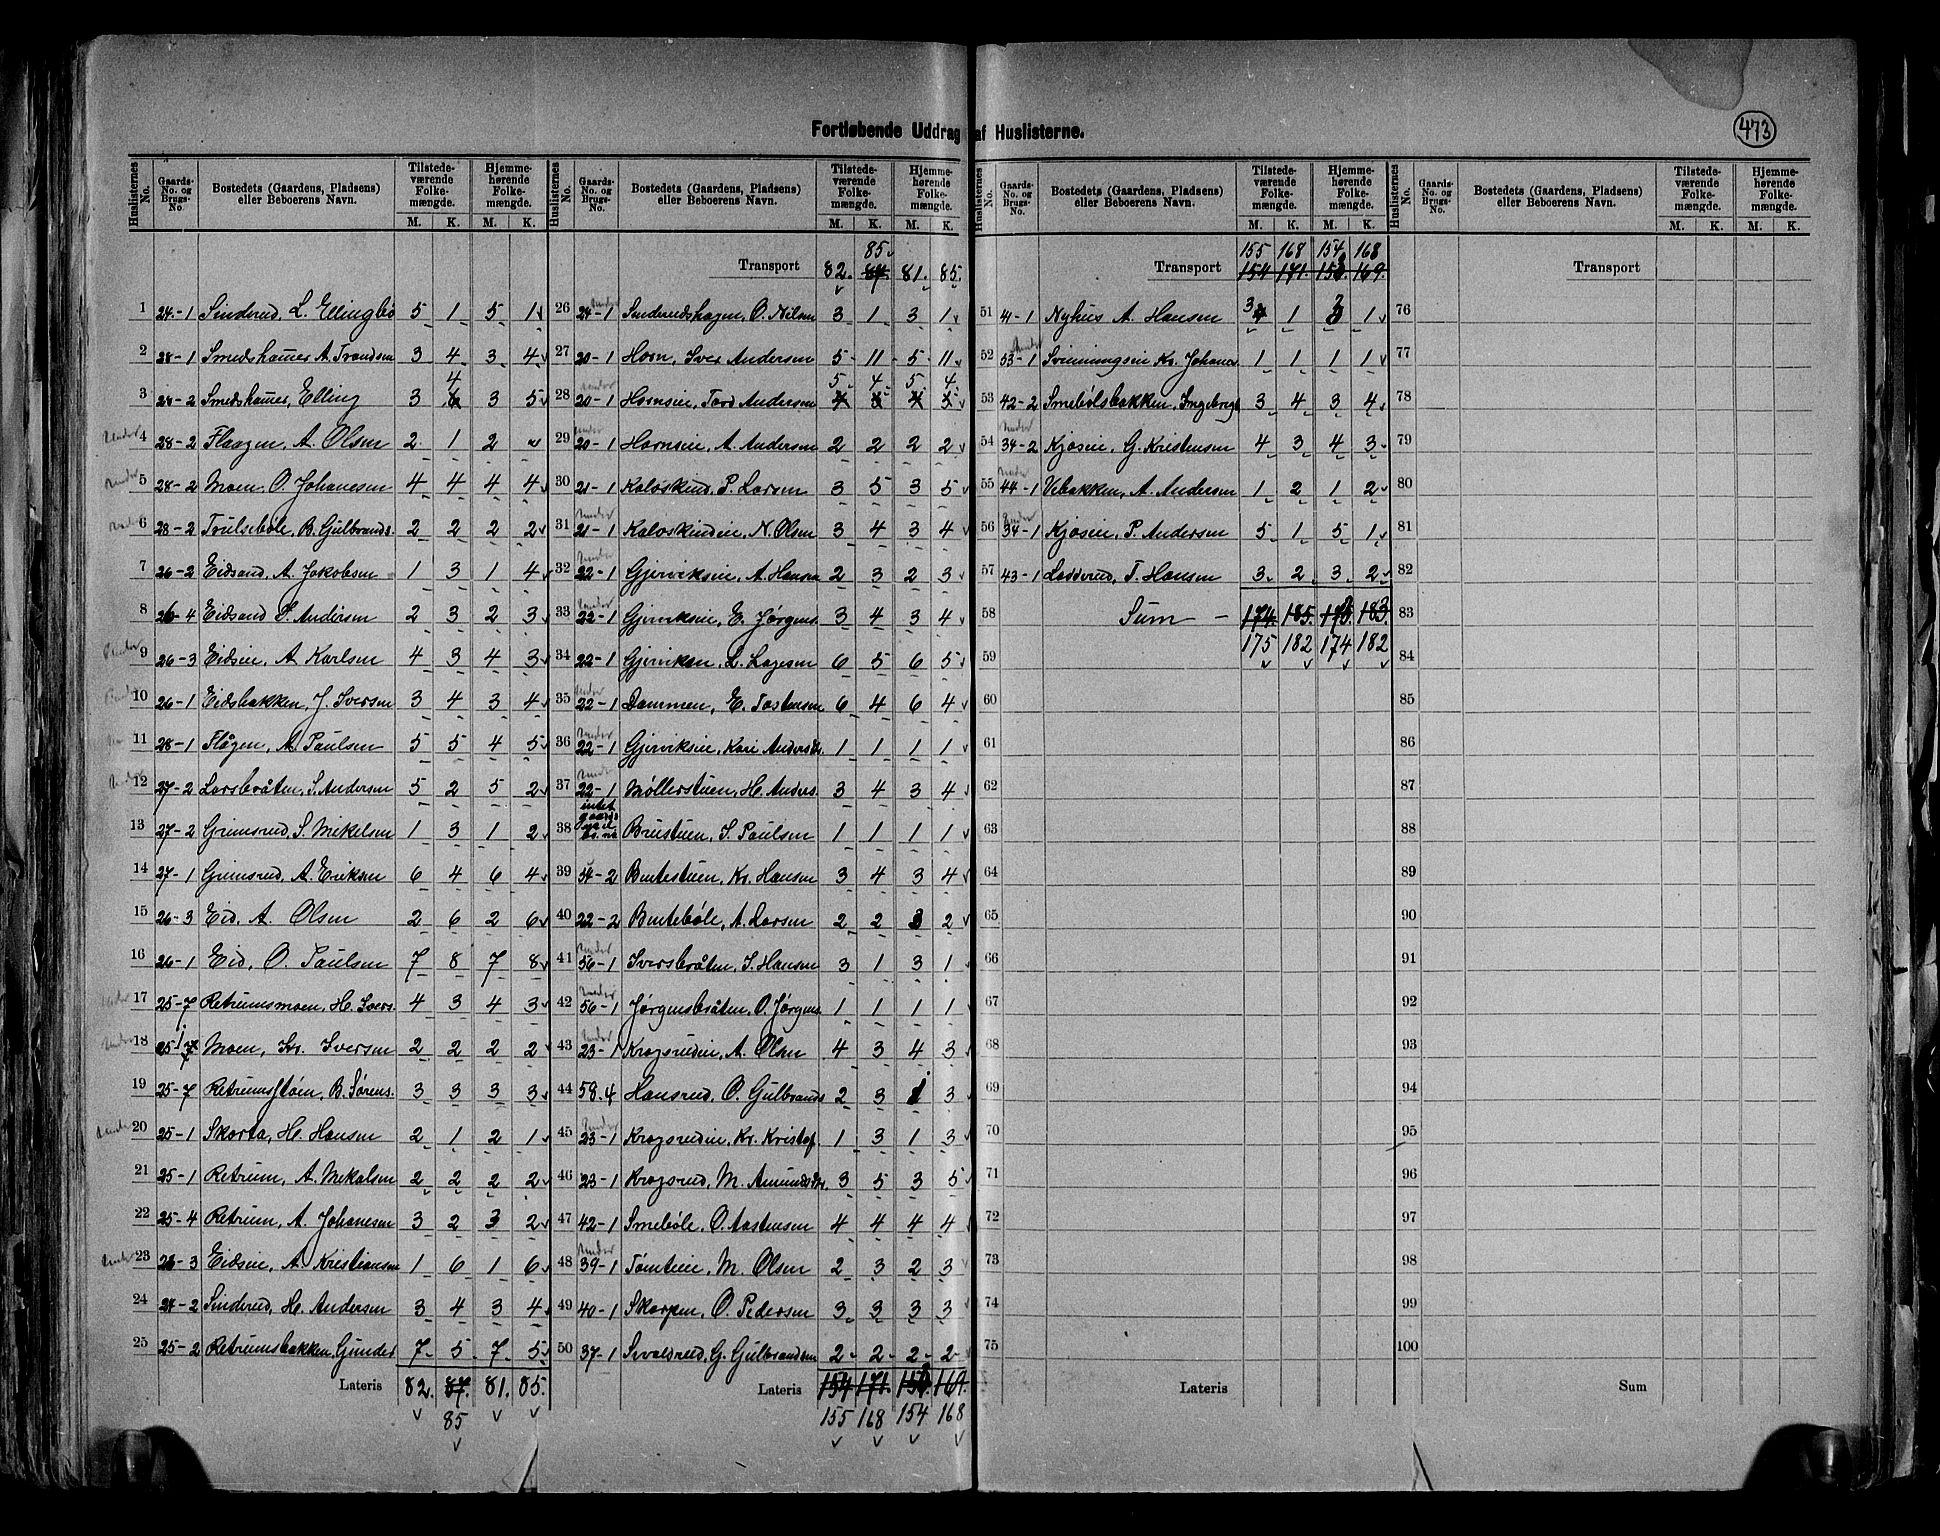 Fortløbende Uddrag af Huslisterne.
473
Huslisternes No. Gaards-No. og Brugs-No. Bostedets (Gaardens, Pladsens) eller Beboerens Navn. Tilstedeværende Folkemængde. Hjemmehørende Folkemængde.
M. K. M. K.
1 24-1 Sinderud, L. Ellingbø 5 1 5 1
2 28-1 Smedshauer A. Trondsen 3 4 3 4
3 28-2 Smedshauer, Elling 3 4 3 5
Under 4 28-2 Flaagen, A. Olsen 2 1 2
Under 5 28-2 Moen, O. Johanesen 4 4 4 4
Under 6 28-2 Trulsebøle, B. Gulbrands. 2 2 2 2
7 26-2 Eidsand, A. Jakobsen 1 3 1 4
8 26-4 Eidsand S. Andersen 2 3 2 3
Under 9 26-3 Eidseie, A. Karlsen 4 3 4 3
Under 10 26-1 Eidsbakken, J. Iversen 3 4 3 4
11 28-1 Flågen, A. Paulsen 5 5 4 5
Under 12 27-2 Larsbråten, S. Andersen 5 2 5 2
13 27-2 Grimsrud, S. Mikelsen 1 3 1 2
14 27-1 Grimsrud, A. Eriksen 6 4 6 4
15 26-3 Eid, A. Olsen 2 6 2 6
16 26-1 Eid, O. Paulsen 7 8 7 8
Under 17 25-7 Retrumsmoen, H. Ivers. 4 3 4 3
Under 18 25-1 Moen, Iv. Iversen 2 2 2 2
19 25-7 Retrumsstøen, B. Sørens. 3 3 3 3
Under 20 25-1 Skorta, H. Hansen 2 1 2 1
21 25-1 Retrum, A. Mekalsen 2 2 2 2
22 25-4 Retrum, A. Johanesen 3 2 3 2
Under 23 26-3 Eidseie, A. Kristiansen 1 6 1 6
24 24-2 Sinderud, H. Andersen 3 4 3 4
25 25-2 Retrumsbakken, Gunder 7 5 7 5
Lateris 82. 87. 81. 85.
85
Huslisternes No. Gaards-No. og Brugs-No. Bostedets (Gaardens, Pladsens) eller Beboerens Navn. Tilstedeværende Folkemængde. Hjemmehørende Folkemængde.
M. K. M. K.
85
Transport 82. 87 81. 85.
26 Under 24-1 Sinderudshagen, O. Nilsen 3 1 3 1
27 20-1 Horn, Iver Andersen 5 11 5 11
5 4 5 4
28 Under 20-1 Hornseie, Tord Andersen 4 4
29 Under 20-1 Hornseie, A. Andersen 2 2 2 2
30 21-1 Kaloskind, P. Larsen 3 5 3 5
31 Under 21-1 Kaloskindeie, N. Olsen 3 4 3 4
32 Under 22-1 Gjervikseie, A. Hansen 2 3 2 3
33 Under 22-1 Gjervikseie, E. Jørgens. 3 4 3 4
34 22-1 Gjerviken, L. Lagesen 6 5 6 5
35 Under 22-1 Dammen, E. Tostensen 6 4 6 4
36 Under 22-1 Gjervikseie, Kari Andersdtr. 1 1 1 1
37 Under 22-1 Møllerstuen, H. Anders. 3 4 3 4
38 intet gaards Brustuen, S. Paulsen 1 1 1 1
39 54-2 Buttestuen, Kr. Hansen 3 4 3 4
40 22-2 Buttebøle, A. Larsen 2 2 3 2
41 Under 56-1 Iversbråten, S. Hansen 3 1 3 1
42 Under 56-1 Jørgensbråten, O. Jørgens. 1 1 1 1
43 Under 23-1 Krogsrudeie, A. Olsen 4 3 4 3
44 58.4 Hansrud, O. Gulbrands 2 3 1 3
45 Under 23-1 Krogsrudeie, Kr. Kristof. 1 3 1 3
46 23-1 Krogsrud, M. Amundsdtr. 3 5 3 5
47 42-1 Smebøle, O. Aastensen 4 4 4 4
48 Under 39-1 Tømteeie, M. Olsen 2 3 2 3
49 40-1 Skarpen, O. Pedersen 3 3 3 3
50 37-1 Sevaldrud, G. Gulbrandsen 2 2 2 2
Lateris 154 171. 153 169.
155 168 154 168
Huslisternes No. Gaards-No. og Brugs-No. Bostedets (Gaardens, Pladsens) eller Beboerens Navn. Tilstedeværende Folkemængde. Hjemmehørende Folkemængde.
M. K. M. K.
155 168 154 168
Transport 154 171. 153 169.
51 41-1 Nyhus A. Hansen 3 1 2 1
52 Under 53-1 Svenningseie Kr. Johanes. 1 1 1 1
53 42-2 Smebølsbakken, Ingebregt 3 4 3 4
54 Under 34-2 Kjøseie, G. Kristensen 4 3 4 3
55 Under 44-1 Vebakken, A. Andersen 1 2 1 2
56 Under 34-1 Kjøseie, P. Andersen 5 1 5 1
57 43-1 Ladderud, T. Hansen 3 2 3 2
58 Sum 174. 185. 173 183.
59 175 182 174 182
60
61
62
63
64
65
66
67
68
69
70
71
72
73
74
75
Lateris
Huslisternes No. Gaards-No. og Brugs-No. Bostedets (Gaardens, Pladsens) eller Beboerens Navn. Tilstedeværende Folkemængde. Hjemmehørende Folkemængde.
M. K. M. K.
Transport
76
77
78
79
80
81
82
83
84
85
86
87
88
89
90
91
92
93
94
95
96
97
98
99
100
Sum